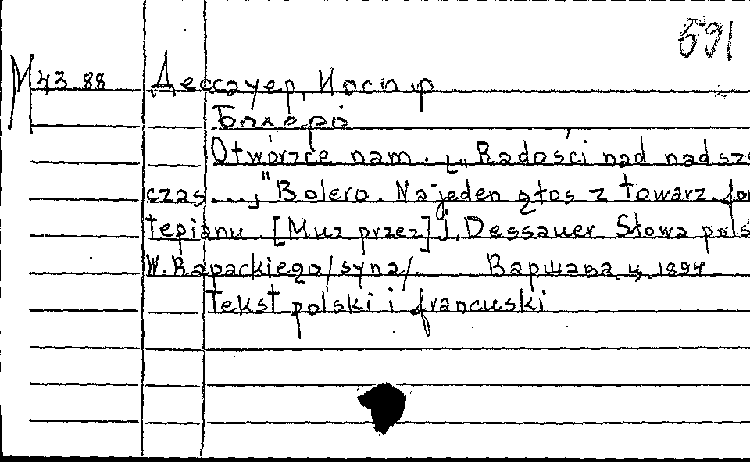 591
М 43.88 Дессауер, Иосиф
Болеро
Otwórzcie nam. ["Radości nad nadsze
czas..." Bolero. Na jeden głos z towarz. for
tepianu. [Muz przez] J. Dessauer Słowa pols
W. Rapackiego/syna/ Варшава ц. 1897
Tekst polski i francuski